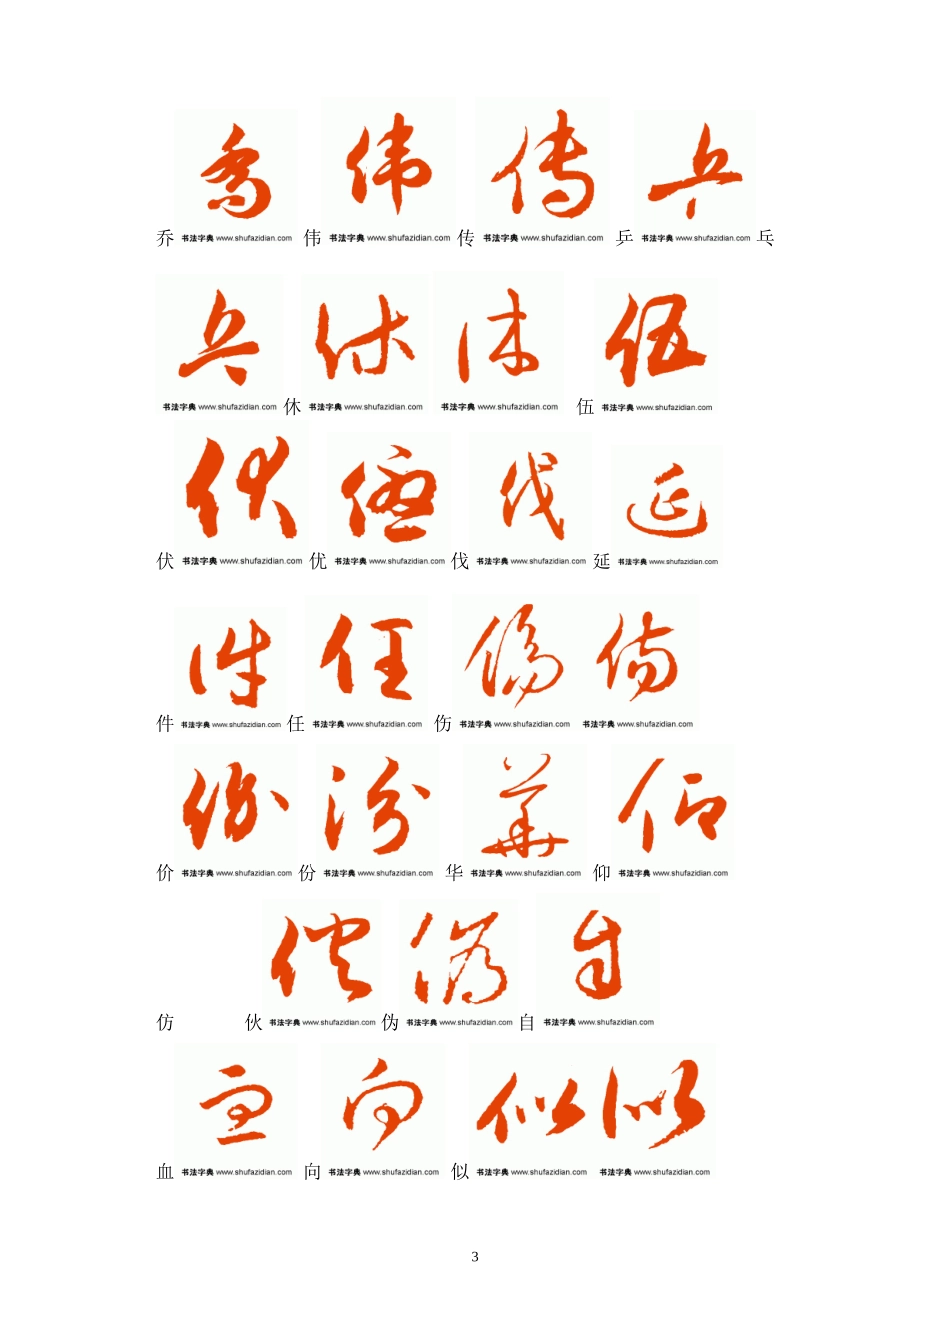 乔 书法字典 www.shufazidian.com 伟 书法字典 www.shufazidian.com 传 书法字典 www.shufazidian.com 乒 书法字典 www.shufazidian.com 乓
书法字典 www.shufazidian.com 休 书法字典 www.shufazidian.com 书法字典 www.shufazidian.com 伍 书法字典 www.shufazidian.com
伏 书法字典 www.shufazidian.com 优 书法字典 www.shufazidian.com 伐 书法字典 www.shufazidian.com 延 书法字典 www.shufazidian.com
件 书法字典 www.shufazidian.com 任 书法字典 www.shufazidian.com 伤 书法字典 www.shufazidian.com 书法字典 www.shufazidian.com
价 书法字典 www.shufazidian.com 份 书法字典 www.shufazidian.com 华 书法字典 www.shufazidian.com 仰 书法字典 www.shufazidian.com
仿 伙 书法字典 www.shufazidian.com 伪 书法字典 www.shufazidian.com 自 书法字典 www.shufazidian.com
血 书法字典 www.shufazidian.com 向 书法字典 www.shufazidian.com 似 书法字典 www.shufazidian.com 书法字典 www.shufazidian.com
3